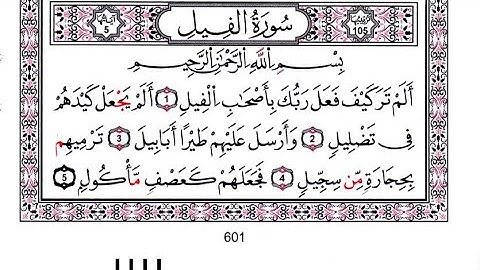 سُورَةُ الفِيلِ
105
5
بِسْمِ اللَّهِ الرَّحْمَٰنِ الرَّحِيمِ
أَلَمْ تَرَ كَيْفَ فَعَلَ رَبُّكَ بِأَصْحَابِ الْفِيلِ 1 أَلَمْ يَجْعَلْ كَيْدَهُمْ
فِي تَضْلِيلٍ 2 وَأَرْسَلَ عَلَيْهِمْ طَيْرًا أَبَابِيلَ 3 تَرْمِيهِم
بِحِجَارَةٍ مِّن سِجِّيلٍ 4 فَجَعَلَهُمْ كَعَصْفٍ مَّأْكُولٍ 5
601